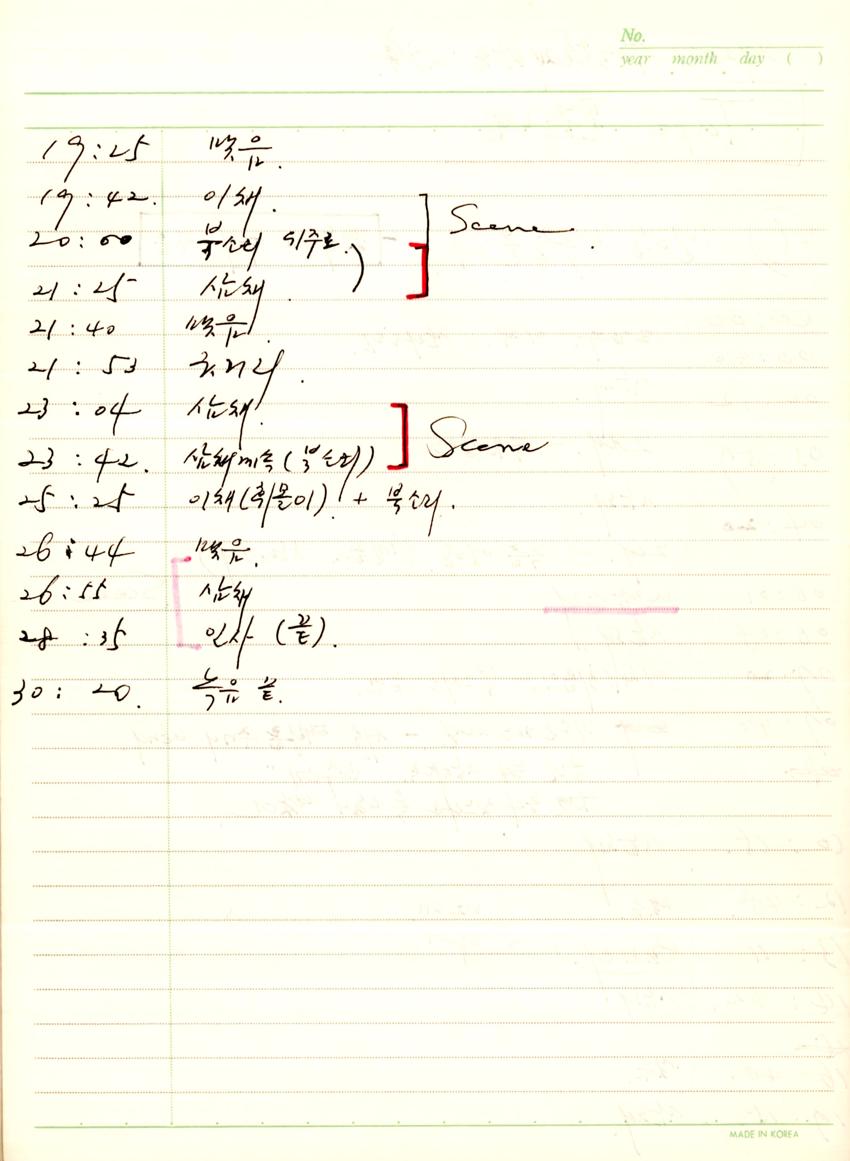 No.
year month day ( )
19:25 맺음.
19:42. 이채.
Scene
20:00 북소리 위주로.)
21:25 삼채.
21:40 맺음.
21:53 굿거리.
23:04 삼채.
Scene
23:42. 삼채계속 (북소리)
25:25 이채(휘몰이) + 북소리.
26:44 맺음.
26:55 삼채
28:35 인사 (끝).
30:20. 녹음 끝.
MADE IN KOREA